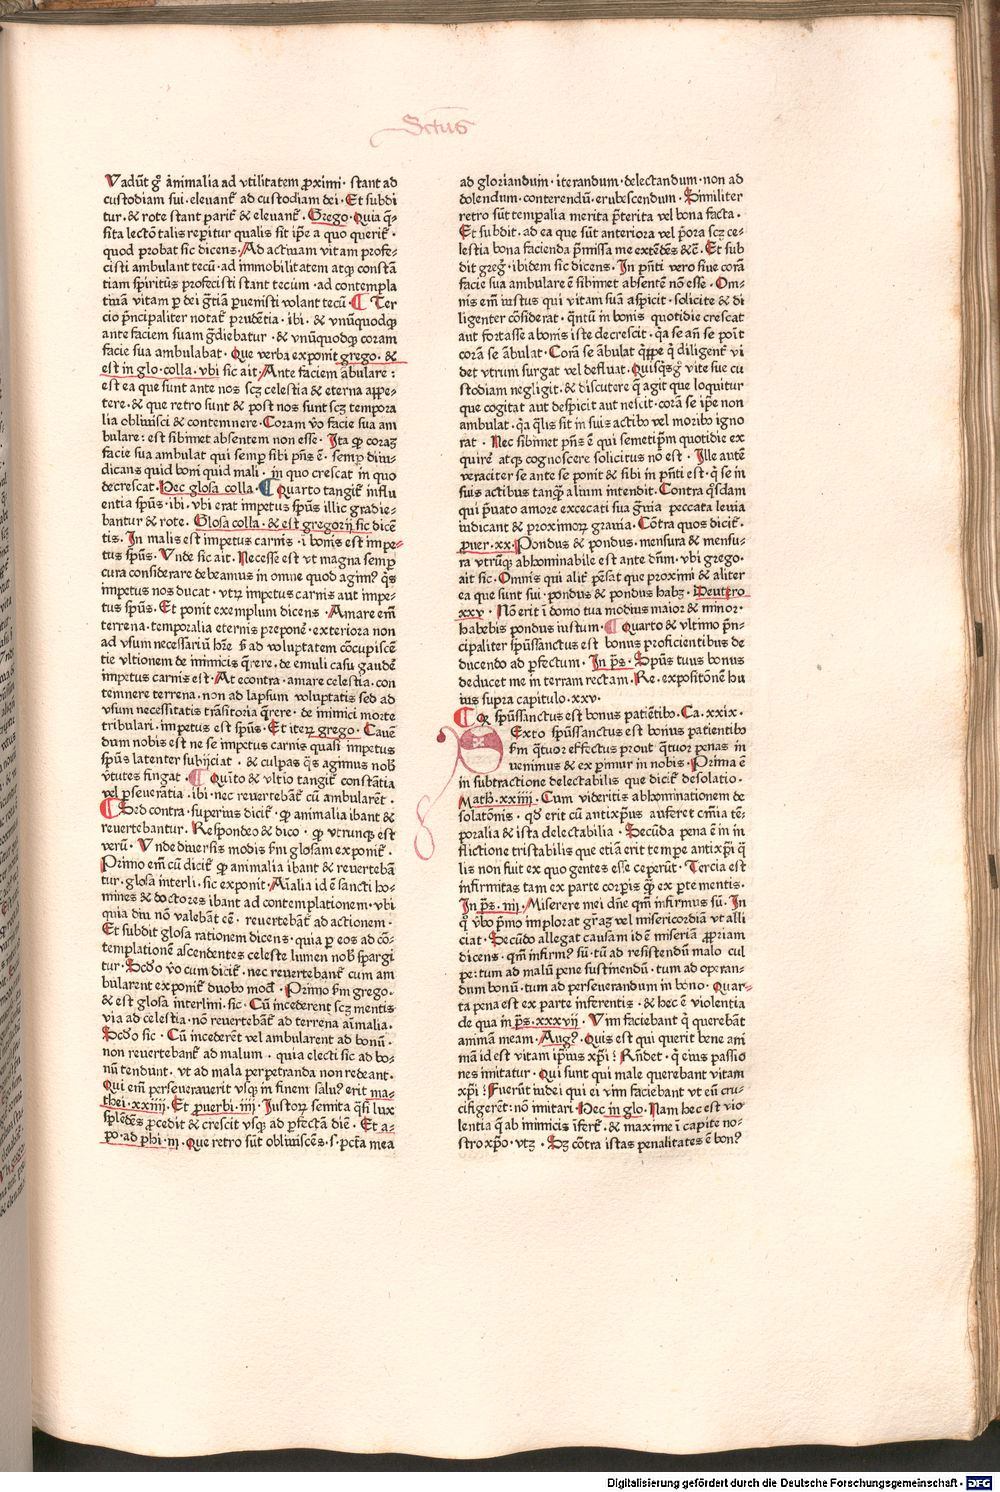 Sctus
Vadūt gͦ animalia ad vtilitatem ꝓximi · stant ad
custodiam sui · eleuant᷑ ad custodiam dei · Et subdi
tur · & rote stant parit᷑ & eleuant᷑ · Grego · Quia q̄-
sita lectōn talis reꝑitur qualis sit ip̄e a quo querit᷑ ·
quod probat sic dicens · Ad actiuam vitam profe-
cisti ambulant tecū · ad immobilitatem atqꝫ constā
tiam sp̄iritus profecisti stant tecum · ad contempla
tiuā vitam ꝑ dei gr̄tiā ꝑuenisti volant tecū · Ter
cio p̄ncipaliter notat᷑ prudētia · ibi · & vnūquodqꝫ
ante faciem suam gͣdiebatur · & vnūquodqꝫ coram
facie sua ambulabat · Que verba exponit grego · &
est in glo · colla · vbi sic ait · Ante faciem ābulare :
est ea que sunt ante nos scꝫ celestia & eterna appe-
tere · & que retro sunt & post nos sunt scꝫ tempora
lia obliuisci & contemnere · Coram vͦo facie sua am
bulare : est sibimet absentem non esse · Ita ꝙ coraꝫ
facie sua ambulat qui semꝑ sibi pn̄s ē · semꝑ diiu-
dicans quid boni quid mali · in quo crescat in quo
decrescat · Hec glosa colla · Quarto tangit᷑ influ
entia sp̄us · ibi · vbi erat impetus sp̄us illic gradie-
bantur & rote · Glosa colla · & est gregorij sic dicē
tis · In malis est impetus carnis · i bonis est impe-
tus sp̄us · Vnde sic ait · Necesse est vt magna semꝑ
cura considerare debeamus in omne quod agimꝰ q̄s
impetus nos ducat · vtꝝ impetus carnis aut impe-
tus sp̄us · Et ponit exemplum dicens · Amare em̄
terrena · temporalia eternis preponē · exteriora non
ad vsum necessariū hr̄e ẜ ad voluptatem cōcupiscē
tie vltionem de inimicis q̄rere · de emuli casu gaudē
impetus carnis est · At econtra · amare celestia · con
temnere terrena · non ad lapsum voluptatis sed ad
vsum necessitatis trāsitoria q̄rere · de inimici morte
tribulari · impetus est sp̄us · Et iteꝝ grego · Cauē
dum nobis est ne se impetus carnis quasi impetus
sp̄us latenter subijciat · & culpas q̄s agimus nob̄
v̓tutes fingat · Quīto & vltio tangit᷑ constātia
vel ꝑseueratia · ibi · nec reuertebāt᷑ cū ambularēt ·
Sed contra · superius dicit᷑ · ꝙ animalia ibant &
reuertebantur · Respondeo & dico · ꝙ vtrunqꝫ est
verū · Vnde diuersis modis ẜm glosam exponit᷑ ·
Primo em̄ cū dicit᷑ ꝙ animalia ibant & reuertebā
tur · glosa interli · sic exponit · Aīalia id ē sancti ho-
mines & doctores ibant ad contemplationem · vbi
quia diu nō valebāt eē · reuertebāt᷑ ad actionem ·
Et subdit glosa rationem dicens · quia ꝑ eos ad cō-
templationē ascendentes celeste lumen nob̄ spargi
tur · Scdͦo vͦo cum dicit᷑ · nec reuertebant᷑ cum am
bularent exponit᷑ duobꝰ modꝭ · Primo ẜm grego ·
& est glosa interlini · sic · Cū incederent scꝫ mentis
via ad celestia · nō reuertebāt᷑ ad terrena aīmalia ·
Scdͦo sic · Cū incederēt vel ambularent ad bonū ·
non reuertebant᷑ ad malum · quia electi sic ad bo-
nū tendunt · vt ad mala perpetranda non redeant ·
Qui em̄ perseuerauerit vsqꝫ in finem saluꝰ erit ma-
thei · xxiiij · Et ꝓuerbi · iiij · Iustoꝝ semita q̄si lux
splēdēs ꝓcedit & crescit vsqꝫ ad ꝑfectā diē · Et a-
po · ad phi · iij · Que retro sūt obliuiscēs · s · pctā mea
ad gloriandum · iterandum · delectandum · non ad
dolendum · conterendū · erubescendum · Similiter
retro sūt tempalia merita p̄terita vel bona facta ·
Et subdit · ad ea que sūt anteriora vel p̄ora scꝫ ce-
lestia bona facienda p̄missa me extēdēs &c̄ · Et sub
dit greg̊ · ibidem sic dicens · In pn̄ti vero siue corā
facie sua ambulare ē sibimet absentē nō esse · Om-
nis em̄ iustus qui vitam suā aspicit · solicite & di
ligenter cōsiderat · qͣntū in bonis quotidie crescat
aut fortasse a bonis iste decrescit · qͣ se an̄ se poit
corā se ābulat · Corā se ābulat qͥppe qͥ diligent᷑ vi
det vtrum surgat vel defluat · Quisqͥs gͦ vite sue cu
stodiam negligit · & discutere q̄ agit que loquitur
que cogitat aut despicit aut nescit · corā se ip̄e non
ambulat · qͣ qͣlis sit in suis actibꝰ vel moribꝰ igno
rat · Nec sibimet pn̄s ē qui semetip̄m quotidie ex
quirē atqꝫ cognoscere solicitus nō est · Ille autē
veraciter se ante se ponit & sibi in pn̄ti est · qͥ se in
suis actibus tanqͣ alium intendit · Contra qͦsdam
qui p̄uato amore excecati sua gͣuia peccata leuia
iudicant & proximoꝝ grauia · Cōtra quos dicit᷑ ·
ꝓuer · xx · Pondus & pondus · mensura & mensu-
ra vtrūqꝫ abhominabile est ante dn̄m · vbi grego ·
ait sic · Omnis qui alit᷑ pēsat que proximi & aliter
ea que sunt sui · pondus & pondus habꝫ · Deutero
xxv · Nō erit i domo tua modius maior & minor ·
habebis pondus iustum · Quarto & vltimo p̄n-
cipaliter sp̄ussanctus est bonus proficientibus de
ducendo ad ꝑfectum · In p̄s · Sp̄us tuus bonus
deducet me in terram rectam · Re · expositonē hu
ius supra capitulo · xxv ·
Qꝫ sp̄ussanctus est bonus patiētibꝰ · Ca · xxix ·
Sexto sp̄ussanctus est bonus patientibꝰ
ẜm qͣtuor effectus prout qͣtuor penas in
uenimus & exꝑimur in nobis · Prima ē
in subtractione delectabilis que dicit᷑ desolatio ·
Math · xxiiij · Cum videritis abhominationem de
solatōnis · qd̄ erit cū antixp̄us auferet om̄ia tē-
poralia & ista delectabilia · Secūda pena ē in in
flictione tristabilis que etiā erit tempe antixp̄i qͣ
lis non fuit ex quo gentes esse ceperūt · Tercia est
infirmitas tam ex parte corꝑis qͣꝫ ex ꝑte mentis ·
In p̄s · iiij · Miserere mei dn̄e qm̄ infirmus sū · In
qͦ v̓bo p̄mo implorat gr̄aꝫ vel misericordiā vt alli
ciat · Secūdo allegat causam id ē miseriā ꝓpriam
dicens · qm̄ infirmꝰ sū · tū ad resistendū malo cul
pe : tum ad malū pene sustinendū · tum ad operan-
dum bonū · tum ad perseuerandum in bono · Quar-
ta pena est ex parte inferentis · & hec ē violentia
de qua in p̄s · xxxvij · Vim faciebant qͥ querebāt
animā meam · Augꝰ · Quis est qui querit bene ani
mā id est vitam ip̄ius xp̄i? Rn̄det · qͥ eius passio
nes imitatur · Qui sunt qui male querebant vitam
xp̄i? Fuerūt iudei qui ei vim faciebant vt eū cru-
cifigerēt : nō imitari · Hec in glo · Nam hec est vio
lentia q̄ ab inimicis ifert᷑ · & maxime i capite no-
stro xp̄o · vtꝫ · Sꝫ cōtra istas penalitates ē bonꝰ
Digitalisierung gefördert durch die Deutsche Forschungsgemeinschaft - DFG